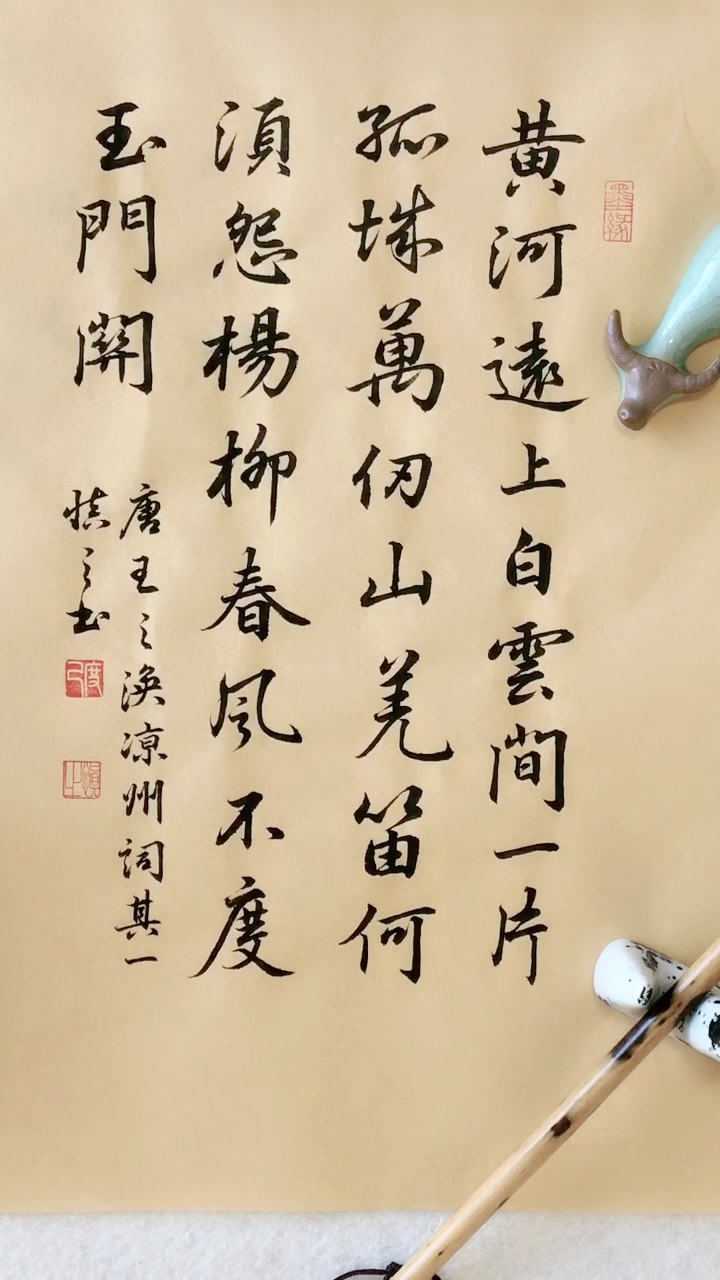 黄河遠上白雲間一片
孤城萬仞山羌笛何
須怨楊柳春風不度
玉門關
唐王之渙凉州詞其一
慎之书
墨缘